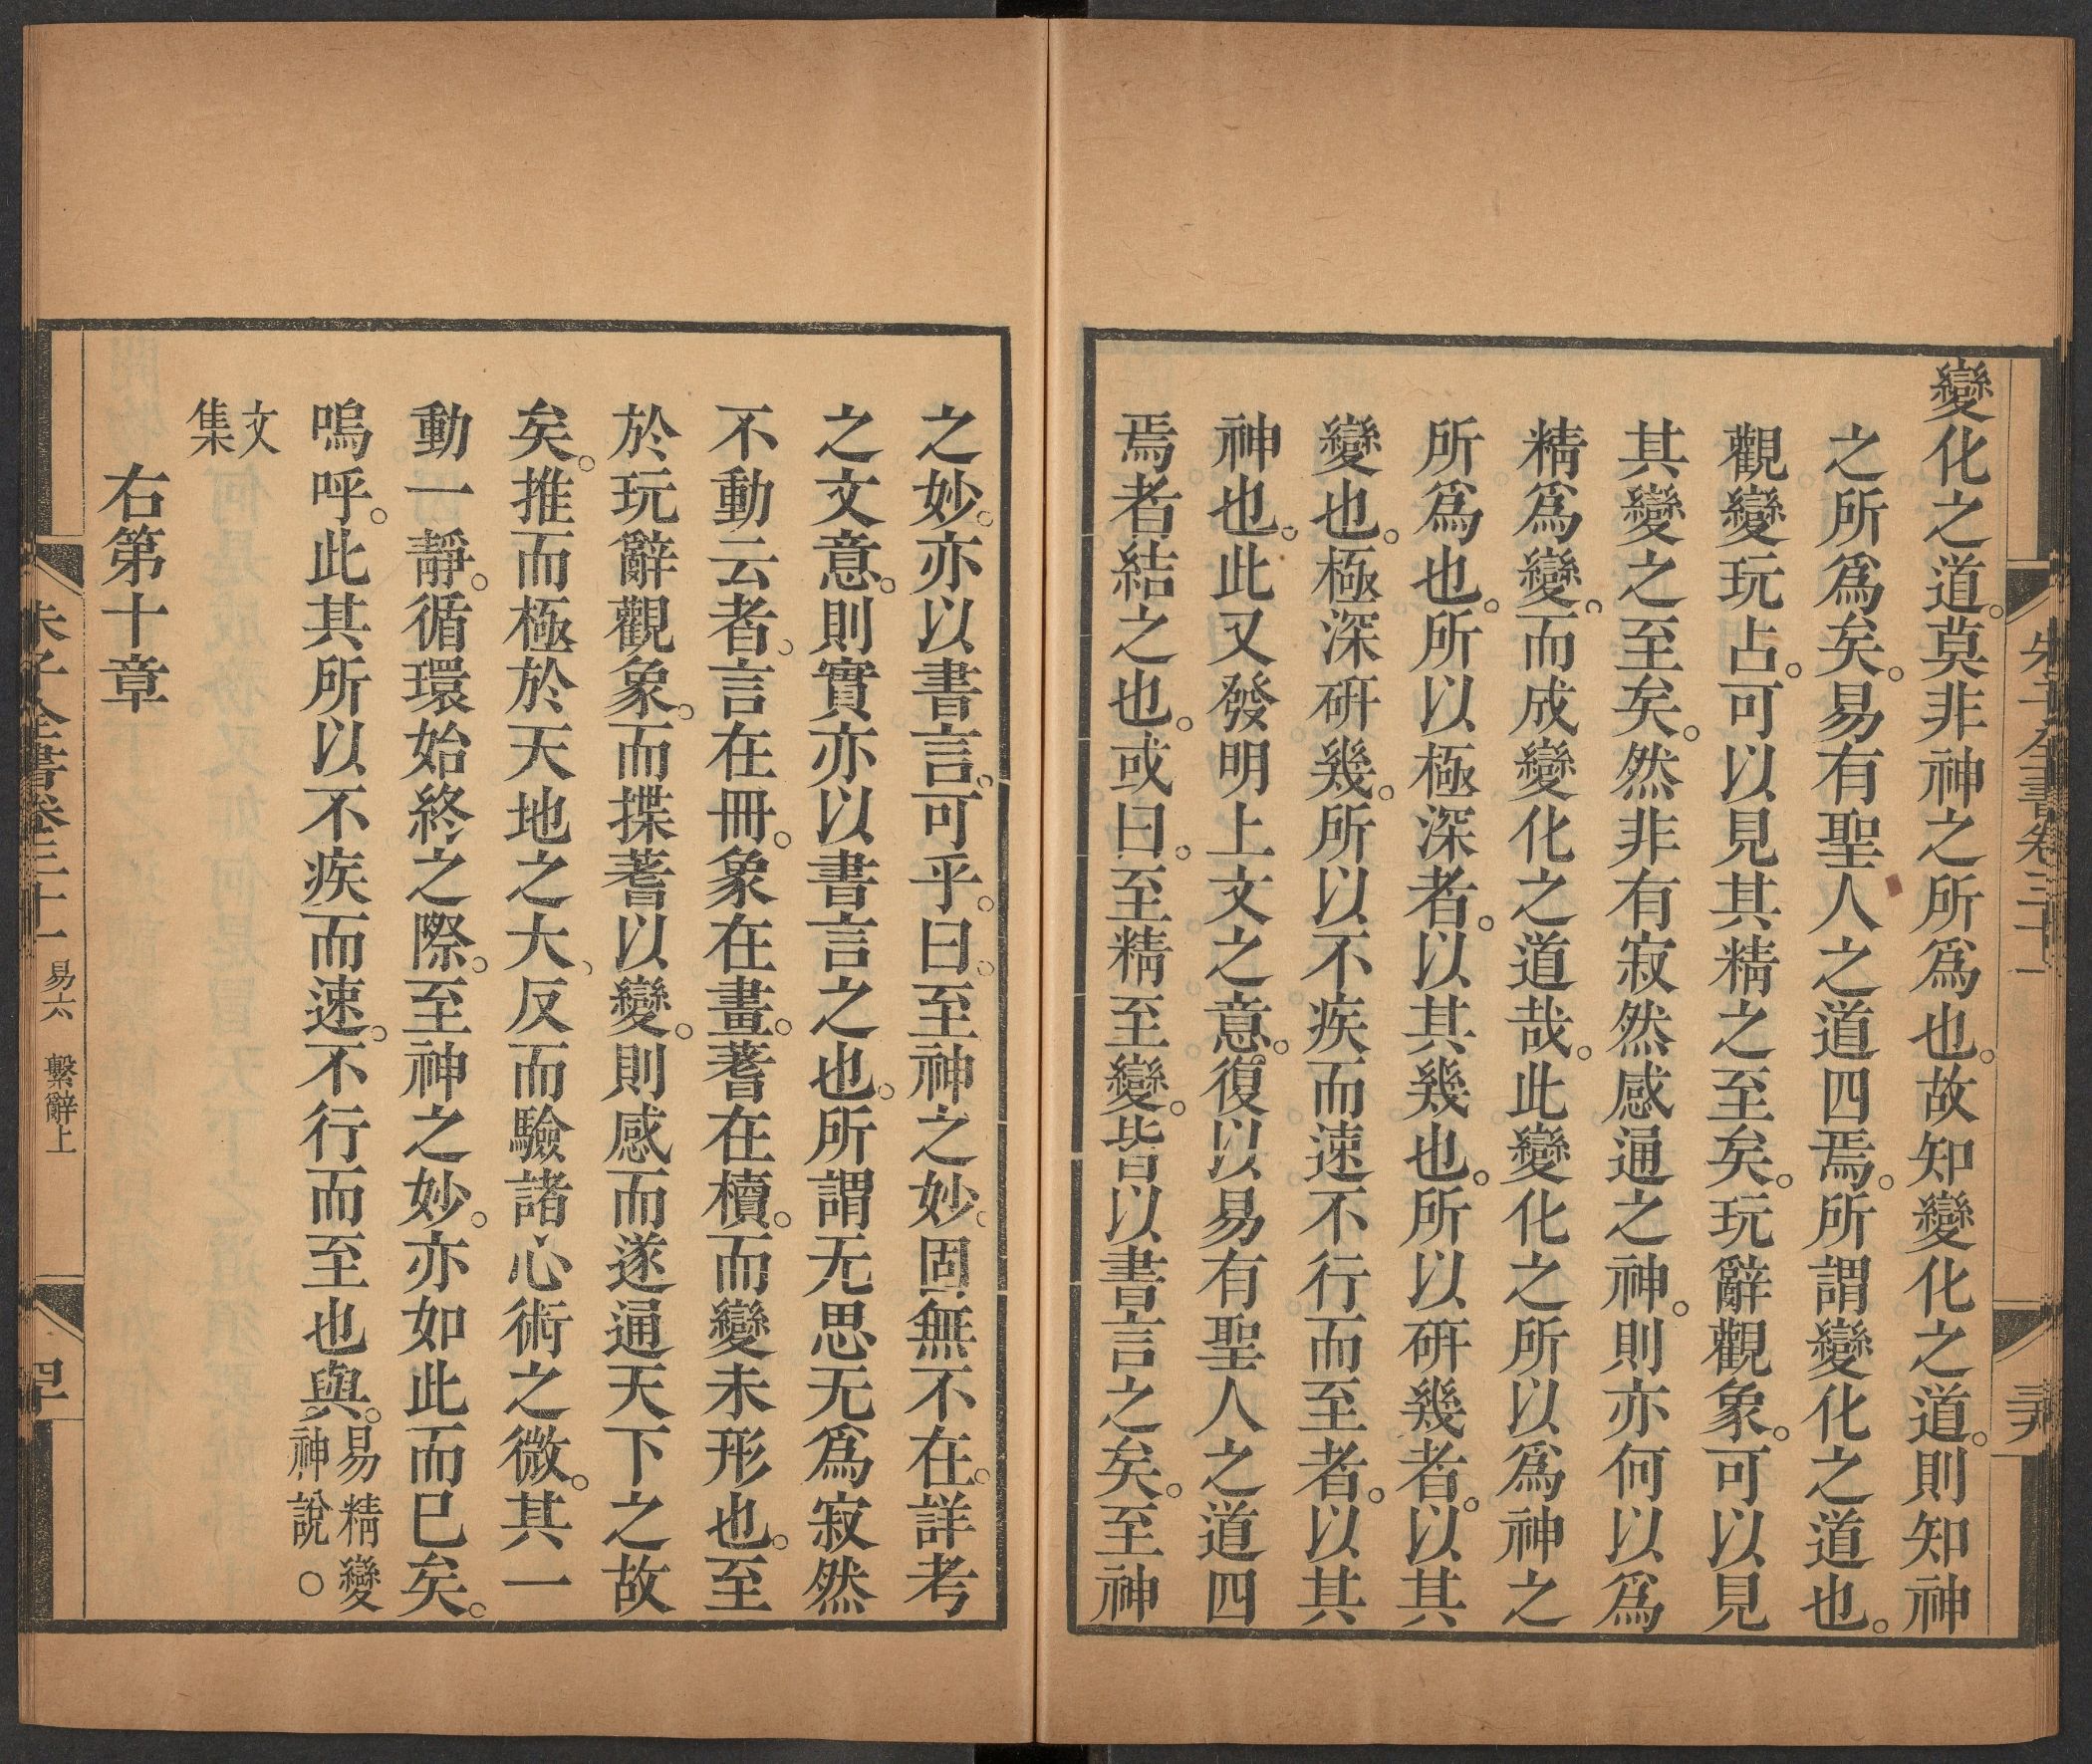 變化之道。莫非神之所爲也。故知變化之道。則知神
之所爲矣。易有聖人之道四焉。所謂變化之道也。
觀變玩占。可以見其精之至矣。玩辭觀象。可以見
其變之至矣。然非有寂然感通之神。則亦何以爲
精爲變。而成變化之道哉。此變化之所以爲神之
所爲也。所以極深者。以其幾也。所以研幾者。以其
變也。極深研幾。所以不疾而速不行而至者。以其
神也。此又發明上文之意。復以易有聖人之道四
焉者結之也。或曰。至精至變。皆以書言之矣。至神
之妙。亦以書言。可乎。曰。至神之妙。固無不在。詳考
之文意。則實亦以書言之也。所謂无思无爲寂然
不動云者。言在冊。象在畫。蓍在櫝。而變未形也。至
於玩辭觀象。而揲蓍以變。則感而遂通天下之故
矣。推而極於天地之大、反而驗諸心術之微。其一
動一靜。循環始終之際。至神之妙。亦如此而已矣。
嗚呼。此其所以不疾而速。不行而至也與。易精變神說○
文集
右第十章
朱子全書卷三十一 易六 繫辭上
四十
朱子全書卷三十一